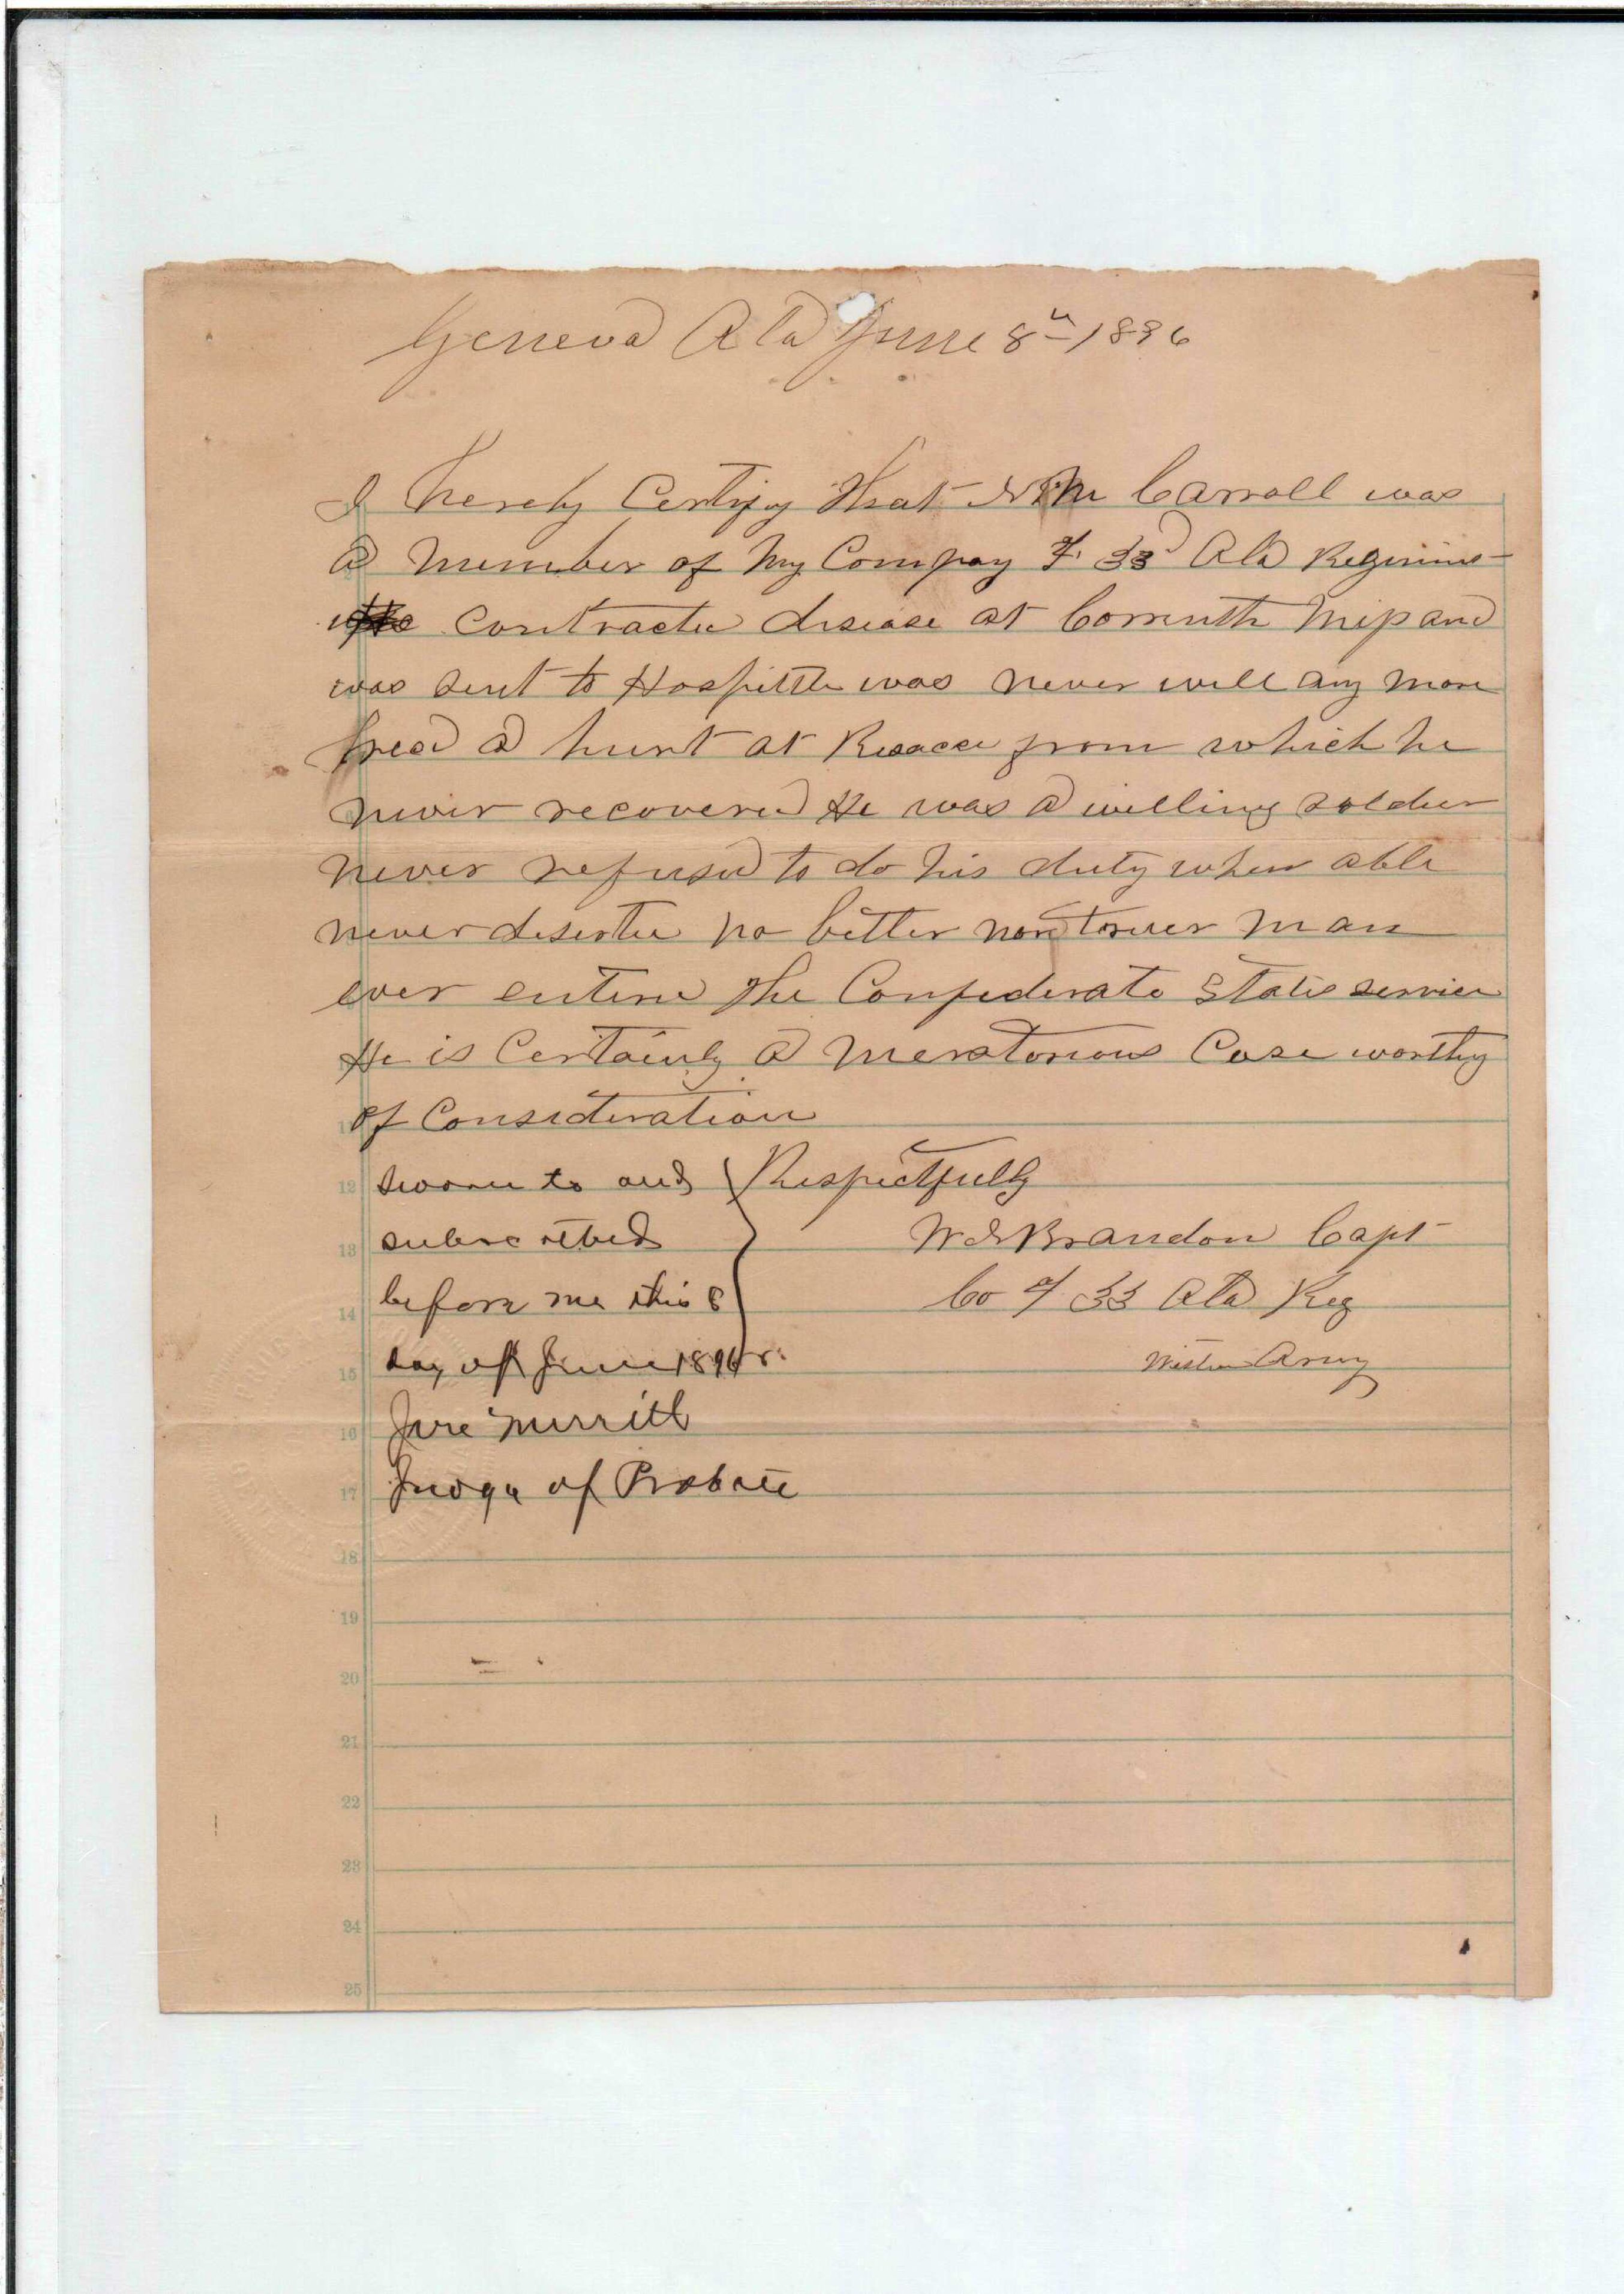 Geneva Ala June 8th 1896
I hereby Certify that Carroll was
a member of my Compay F. 33d Ala Regimint
contracted disease at Corrinth Misp and
was sent to Hospittle was never well any more
hurt at Resacca from which he
never recovered He was a willing soldier
never refused to do his duty when able
never deserted no better nor truer man
ever entered the Confederate States service
He is Certainly a meratorious Case worthy
of Consideration
Respectfully
W E Brandon Capt
Co F 33 Ala Reg
Western Army
sworn to and
subscribed
before me this 8
day of June 1896
Jere Merritt
Judge of Probate
12
13
14
15
16
17
18
19
20
21
22
23
24
25